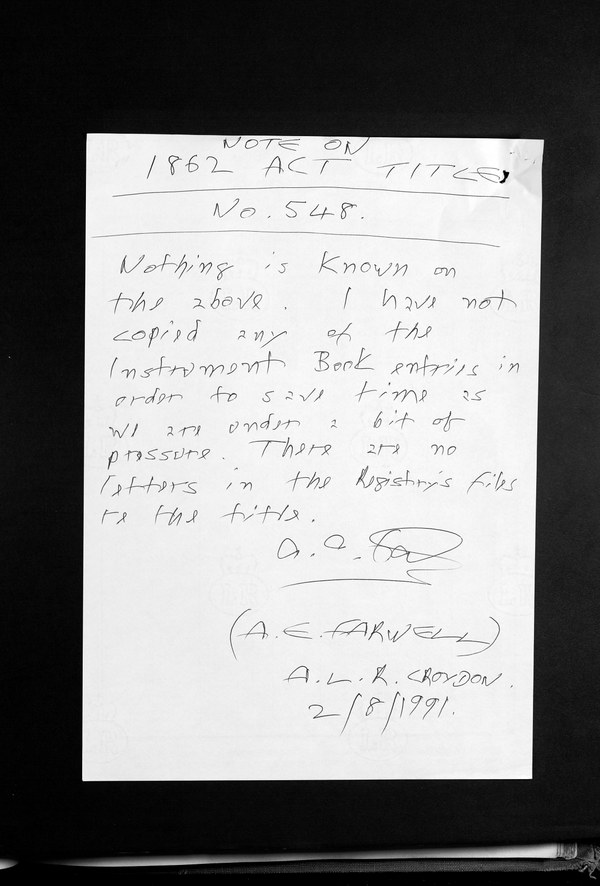 NOTE ON
1862 ACT TITLE
No. 548.
Nothing is known on
the above. I have not
copied any of the
Instrument Book entries in
order to save time as
we are under a bit of
pressure. There are no
letters in the Registry's files
re the title.
(A. E. FARWELL)
A.L.R. CROYDON.
2/8/1991.